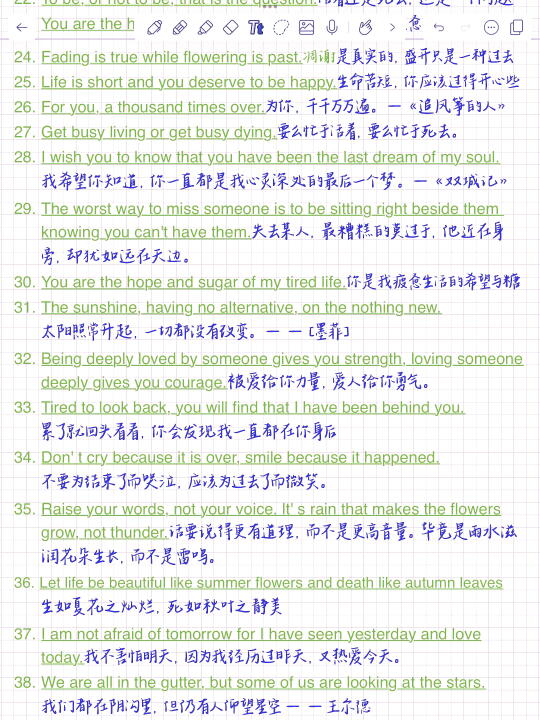 22. To be, or not to be, that is the question.
You are the h
24. Fading is true while flowering is past.凋谢是真实的, 盛开只是一种过去
25. Life is short and you deserve to be happy.生命苦短, 你应该过得开心些
26. For you, a thousand times over.为你, 千千万万遍。—《追风筝的人》
27. Get busy living or get busy dying.要么忙于活着, 要么忙于死去。
28. I wish you to know that you have been the last dream of my soul.
我希望你知道, 你一直都是我心灵深处的最后一个梦。—《双城记》
29. The worst way to miss someone is to be sitting right beside them
knowing you can't have them.失去某人, 最糟糕的莫过于, 他近在身
旁, 却犹如远在天边。
30. You are the hope and sugar of my tired life.你是我疲惫生活的希望与糖
31. The sunshine, having no alternative, on the nothing new.
太阳照常升起, 一切都没有改变。— — [墨菲]
32. Being deeply loved by someone gives you strength, loving someone
deeply gives you courage.被爱给你力量, 爱人给你勇气。
33. Tired to look back, you will find that I have been behind you.
累了就回头看看, 你会发现我一直都在你身后
34. Don' t cry because it is over, smile because it happened.
不要为结束了而哭泣, 应该为过去了而微笑。
35. Raise your words, not your voice. It' s rain that makes the flowers
grow, not thunder.话要说得更有道理, 而不是更高音量。毕竟是雨水滋
润花朵生长, 而不是雷鸣。
36. Let life be beautiful like summer flowers and death like autumn leaves
生如夏花之灿烂, 死如秋叶之静美
37. I am not afraid of tomorrow for I have seen yesterday and love
today.我不害怕明天, 因为我经历过昨天, 又热爱今天。
38. We are all in the gutter, but some of us are looking at the stars.
我们都在阴沟里, 但仍有人仰望星空 — — 王尔德